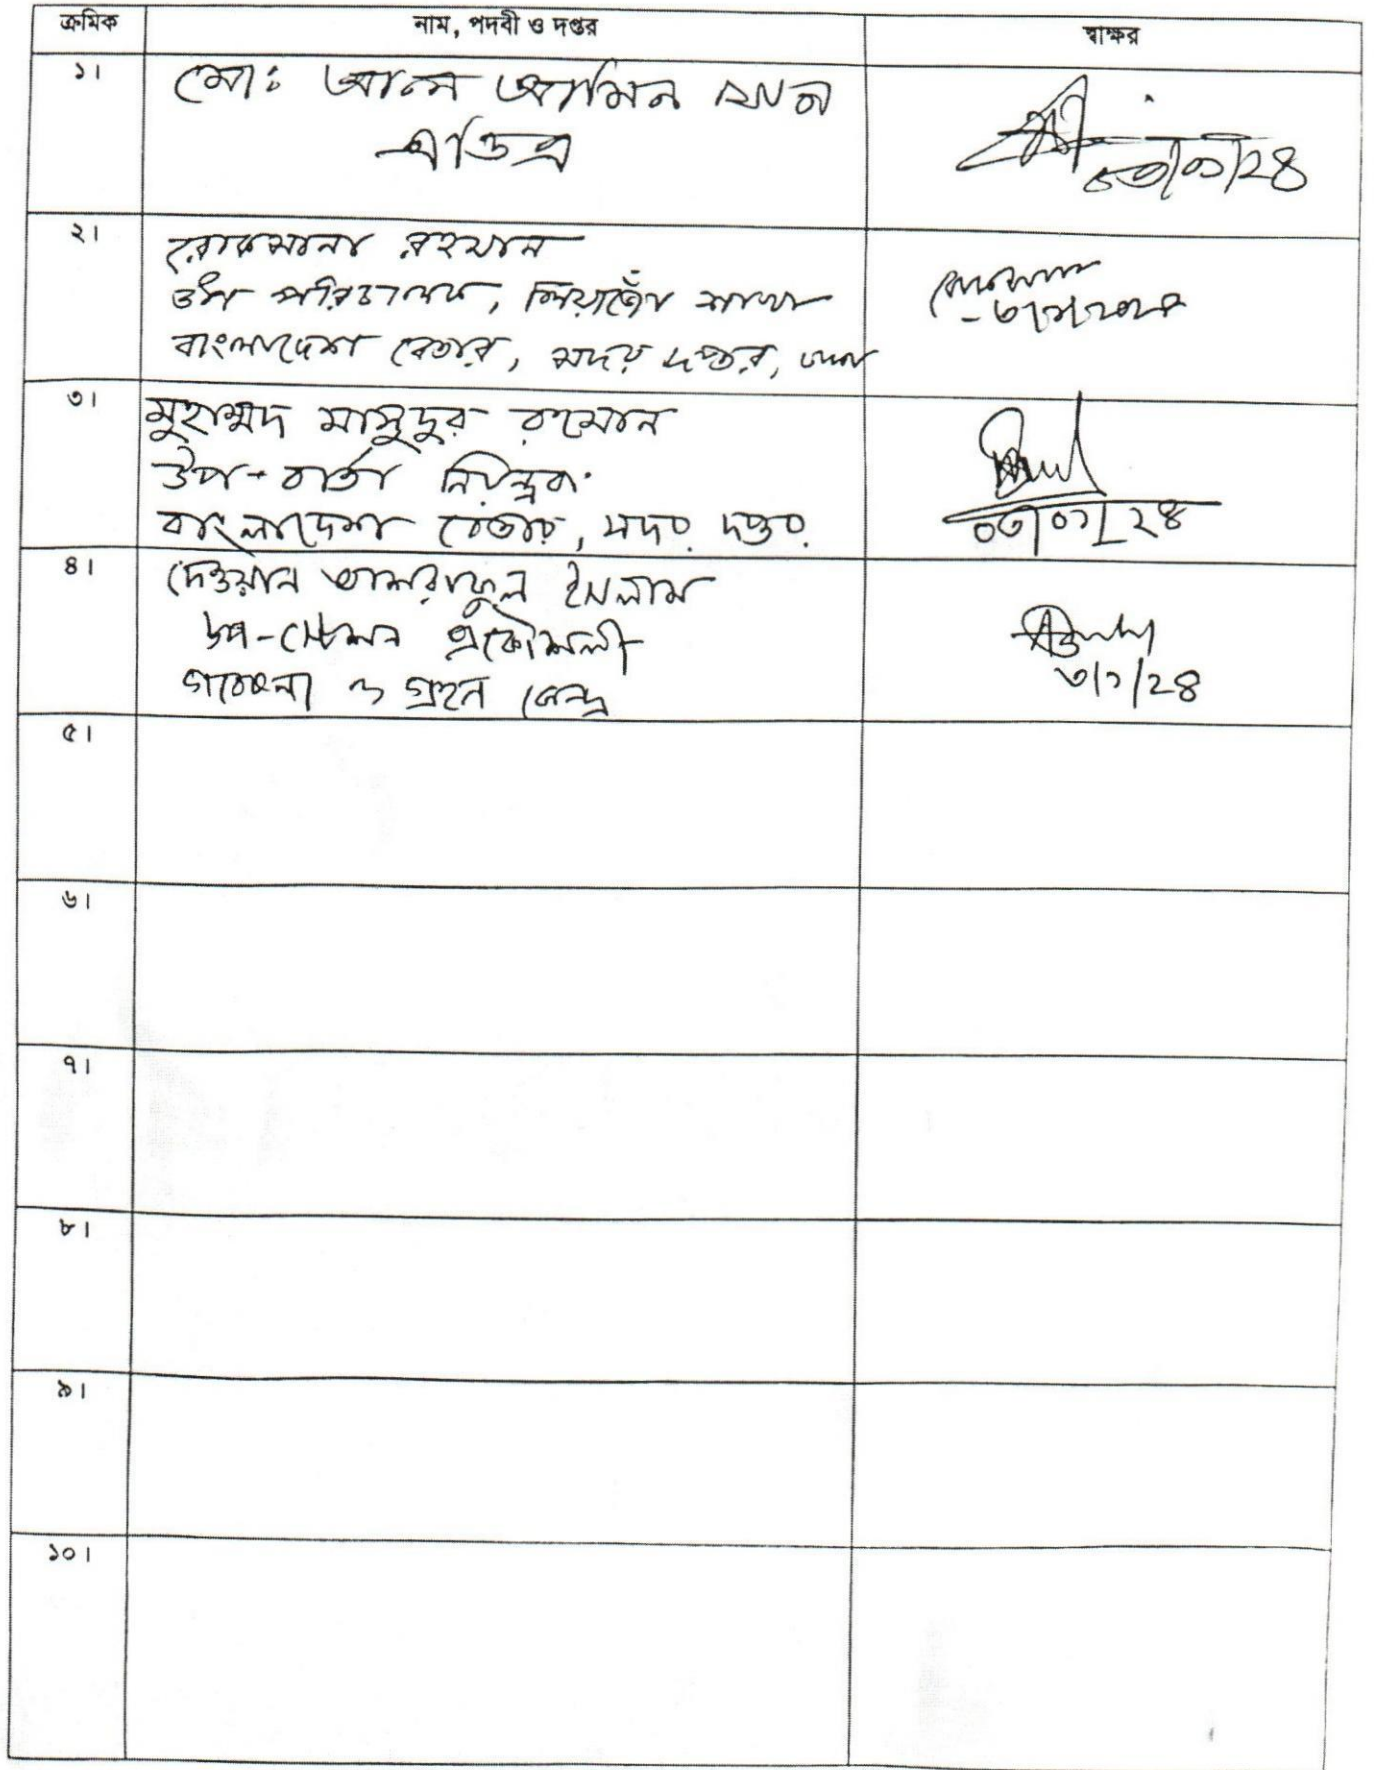 ক্রমিক নাম, পদবী ও দপ্তর স্বাক্ষর
১। মোঃ আল আমিন খান
এডিএ
০৩/০১/২৪
২। রোকসানা রহমান
উপ পরিচালক, লিয়াজোঁ শাখা
বাংলাদেশ বেতার, সদর দপ্তর, ঢাকা
৩। মুহাম্মদ মাসুদুর রহমান
উপ-বার্তা নিয়ন্ত্রক
বাংলাদেশ বেতার, সদর দপ্তর
০৩/০১/২৪
৪। দেওয়ান আশরাফুল ইসলাম
উপ-স্টেশন প্রকৌশলী
গবেষনা ও গ্রহন কেন্দ্র
৩/১/২৪
৫।
৬।
৭।
৮।
৯।
১০।